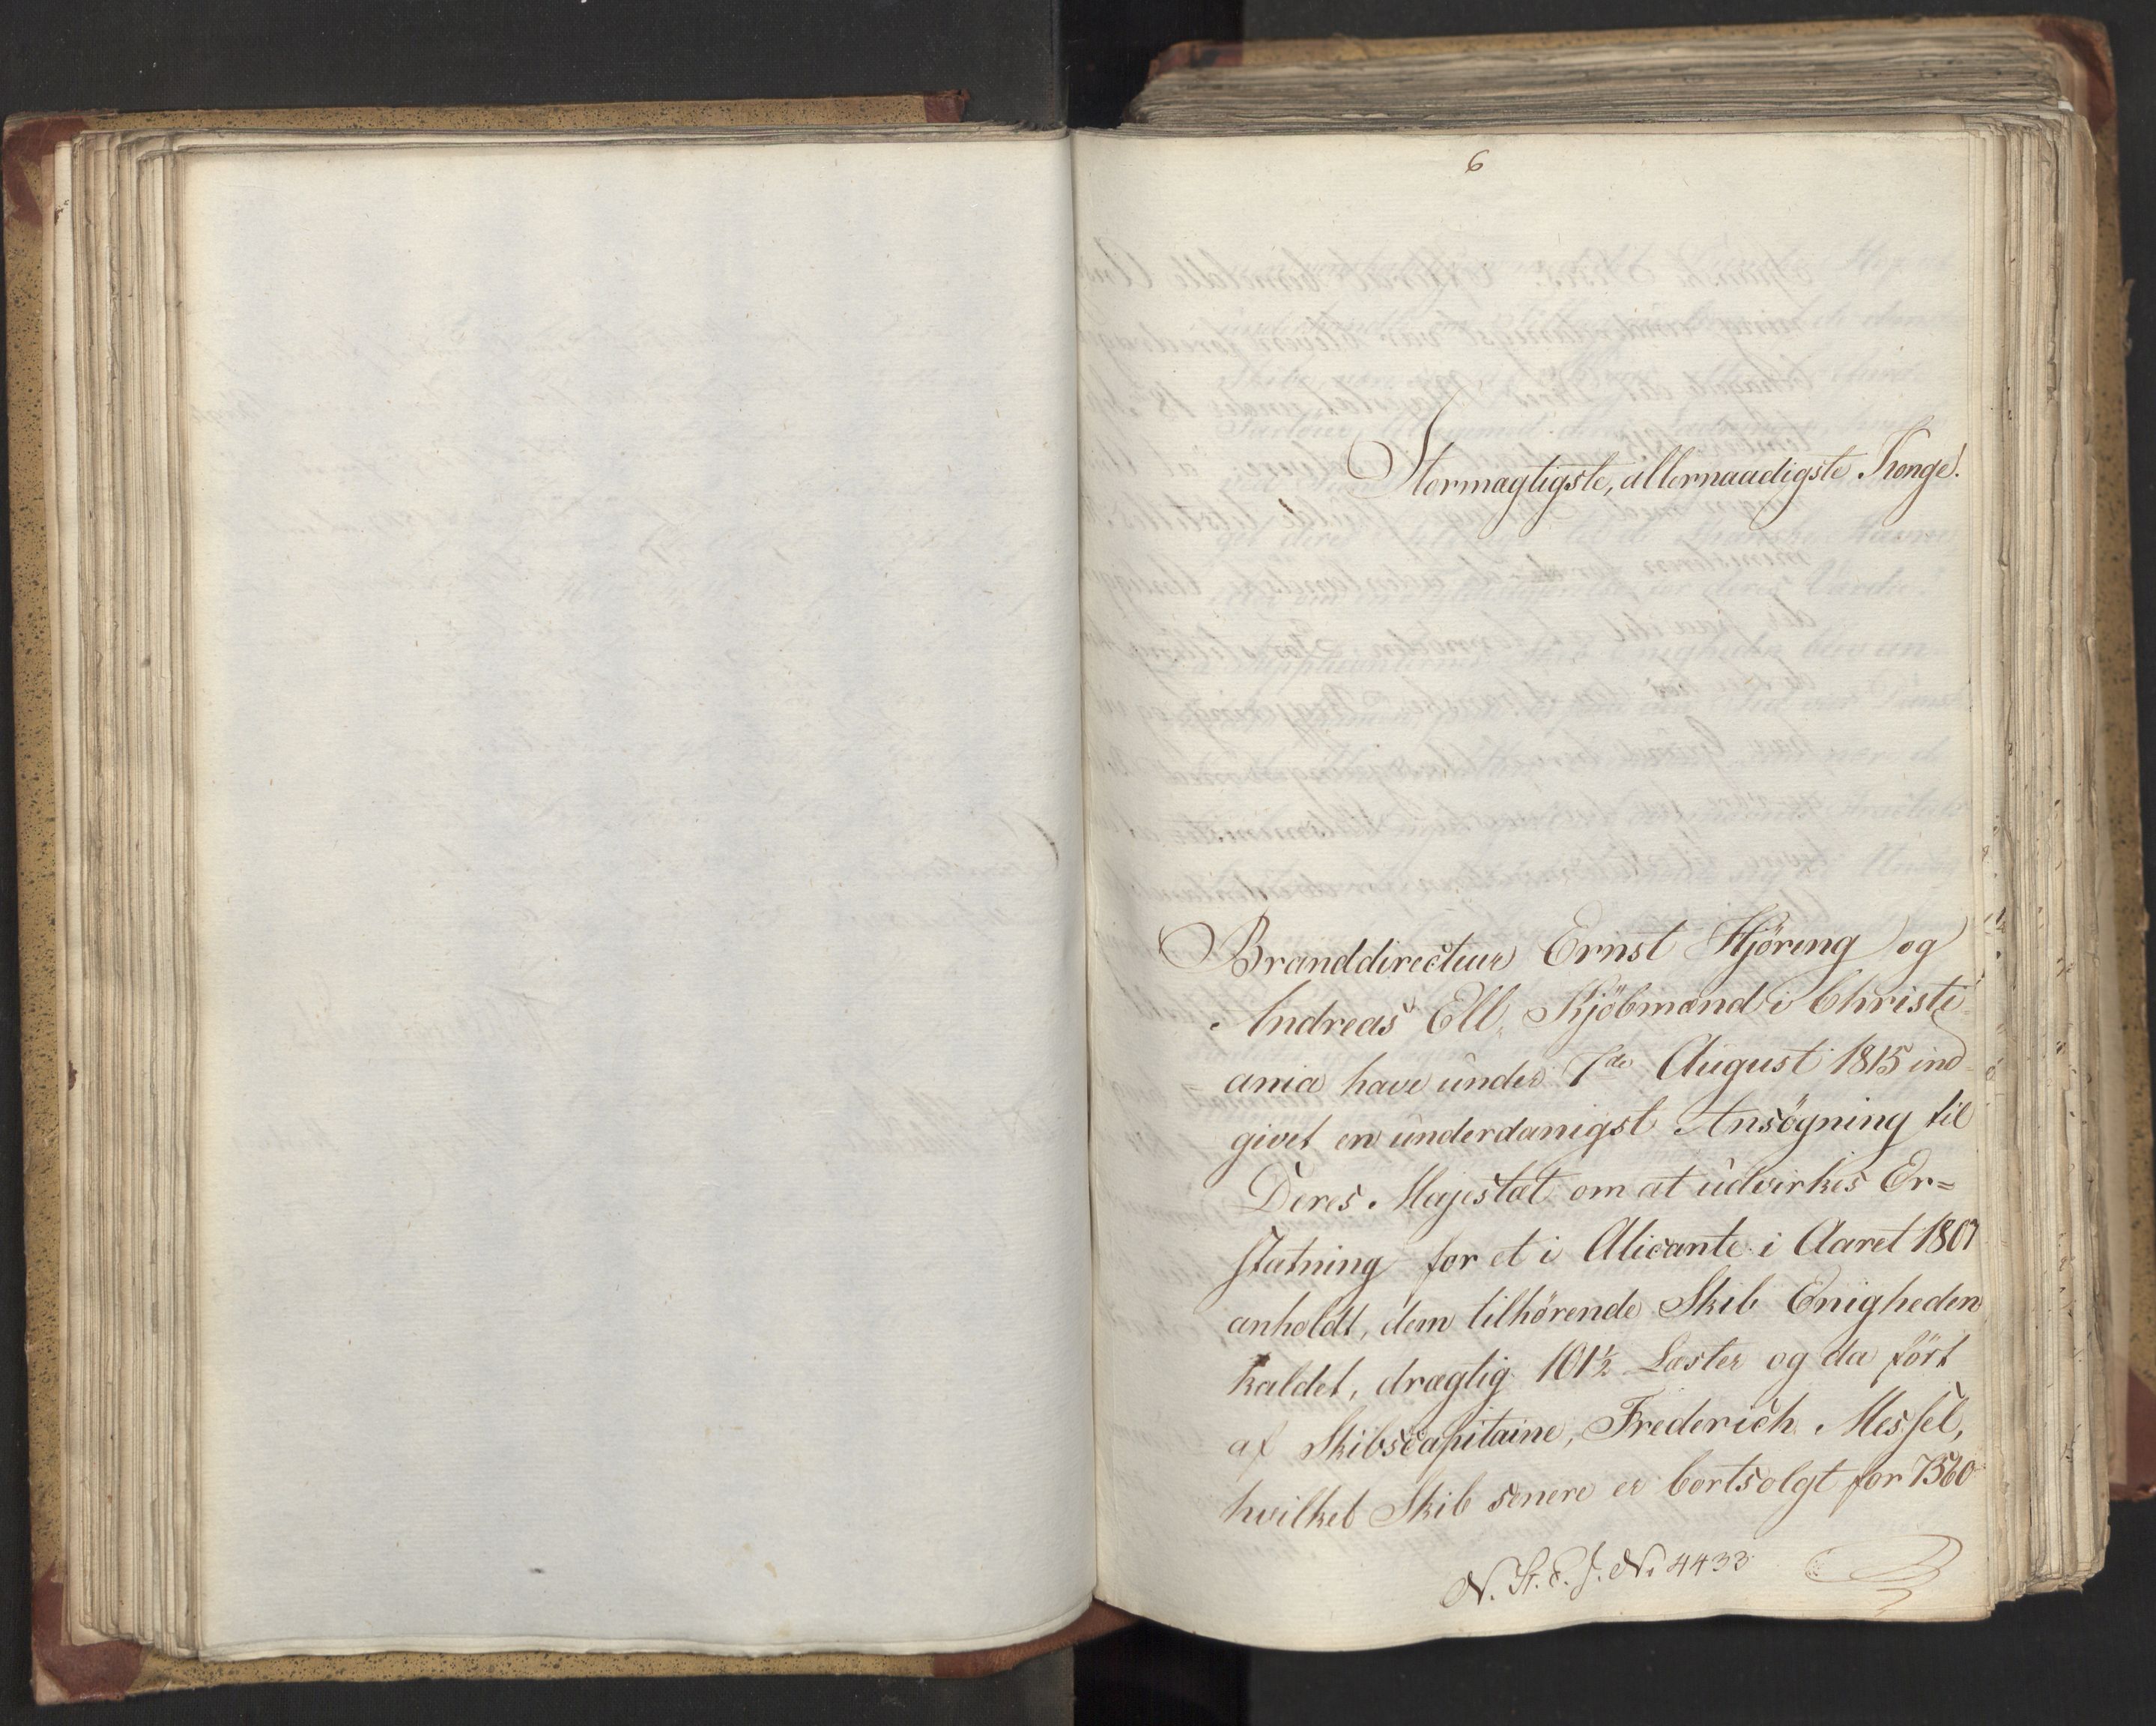 6
Stormægtigste, allernaadigste Konge!
Branddirecteur Ernst Hjöreng og
Andreas Ell, Kjöbmænd i Christi
ania have under 7de August 1815 ind-
givet en underdanigst Ansögning til
Deres Majestæt om at udvirkes Er=
statning for et i Alicante i Aaret 1807
anholdt, dem tilhörende Skib Enigheden
kaldet, drægtig 101½ Læster og da fört
af Skibscapitaine, Frederich Messel,
hvilket Skib senere er bortsolgt for 7560
N. St. E. J. No 4433